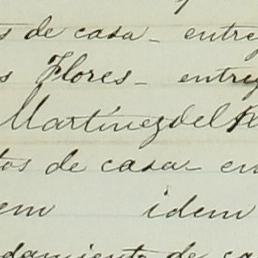 de casa - entre
Flores - entre
Martinez del R
tos de casa - en
idem
damiento de ca